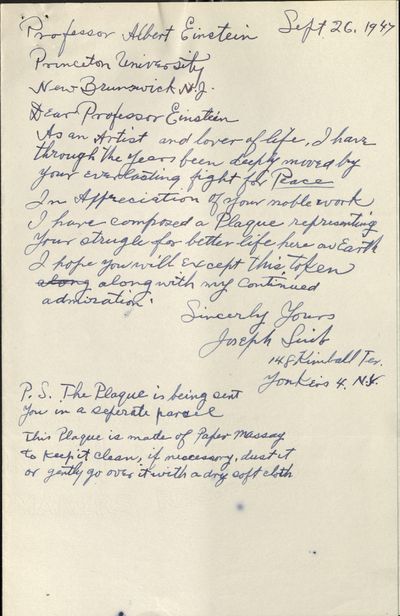 Sept. 26. 1947
Professor Albert Einstein
Princeton University
New Brunswick N.J.
Dear Professor Einstein
As an Artist and lover of life, I have
through the years been deeply moved by
your everlasting fight for Peace
In Appreciation of your noble work
I have composed a Plaque representing
your strugle for better life here on Earth
I hope you will except this token
along along with my continued
admiration.
Sincerly Yours
Joseph
148 Kimball Ter.
Yonkers 4. N.Y.
P.S. The Plaque is being sent
you in a seperate parcel
This Plaque is made of Paper Massay
to keep it clean, if neccessory, dust it
or gently go over it with a dry soft cloth